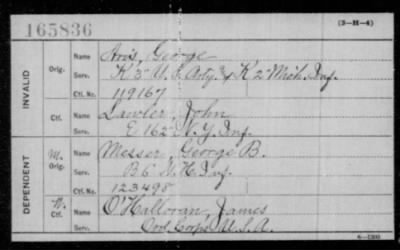 165836
(3-H-4)
INVALID
Orig.
Name Avis, George
Serv. K 3" U.S. Arty. & K 2" Mich. Inf.
Ctf. No. 119167
Ctf.
Name Lawler, John
Serv. E 162" N.Y. Inf.
DEPENDENT
M. Orig.
Name Messer, George B.
Serv. B 6" N.H. Inf.
Ctf. No. 123498
W. Ctf.
Name O'Halloran, James
Serv. Ord. Corps U.S.A.